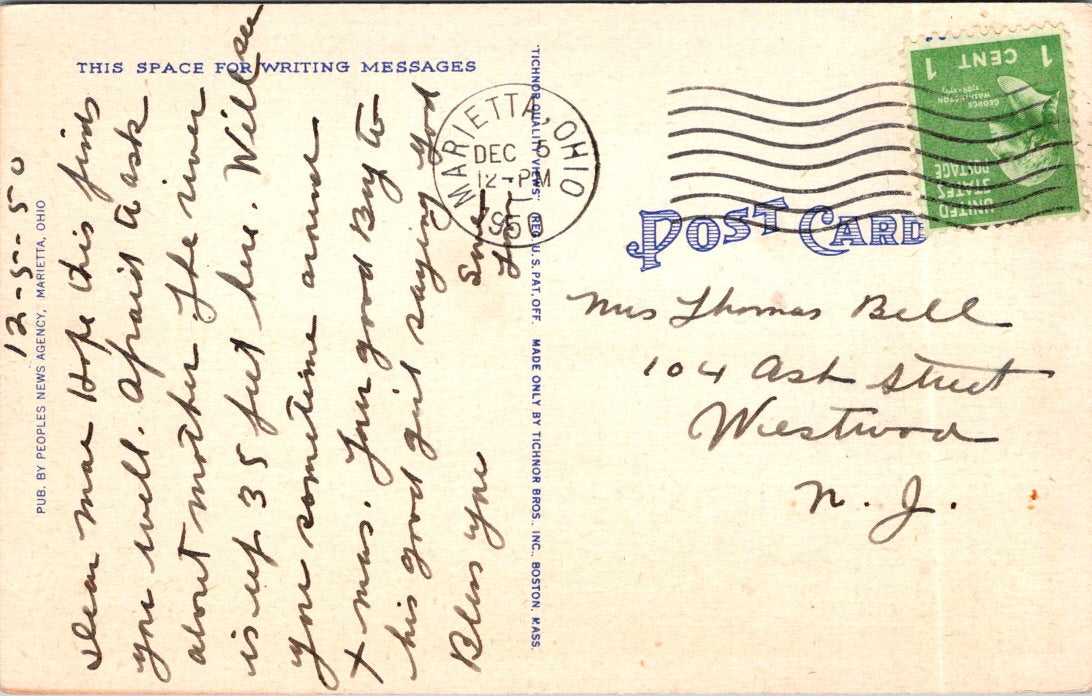 THIS SPACE FOR WRITING MESSAGES
12-5-50
Dear Mae Hope this finds
you well. Afraid to ask
about mother The river
is up 35 feet here. Will see
you sometime around
Xmas. Jim good Boy to
his good girl saying God
Bless you
Jim
PUB. BY PEOPLES NEWS AGENCY, MARIETTA, OHIO
"TICHNOR QUALITY VIEWS," REG. U.S. PAT. OFF. MADE ONLY BY TICHNOR BROS., INC., BOSTON, MASS.
MARIETTA, OHIO
DEC 5
12-PM
1950
1 CENT 1
GEORGE
WASHINGTON
1789-1797
UNITED
STATES
POSTAGE
POST CARD
Mrs Thomas Bell
104 Ash Street
Westwood
N. J.